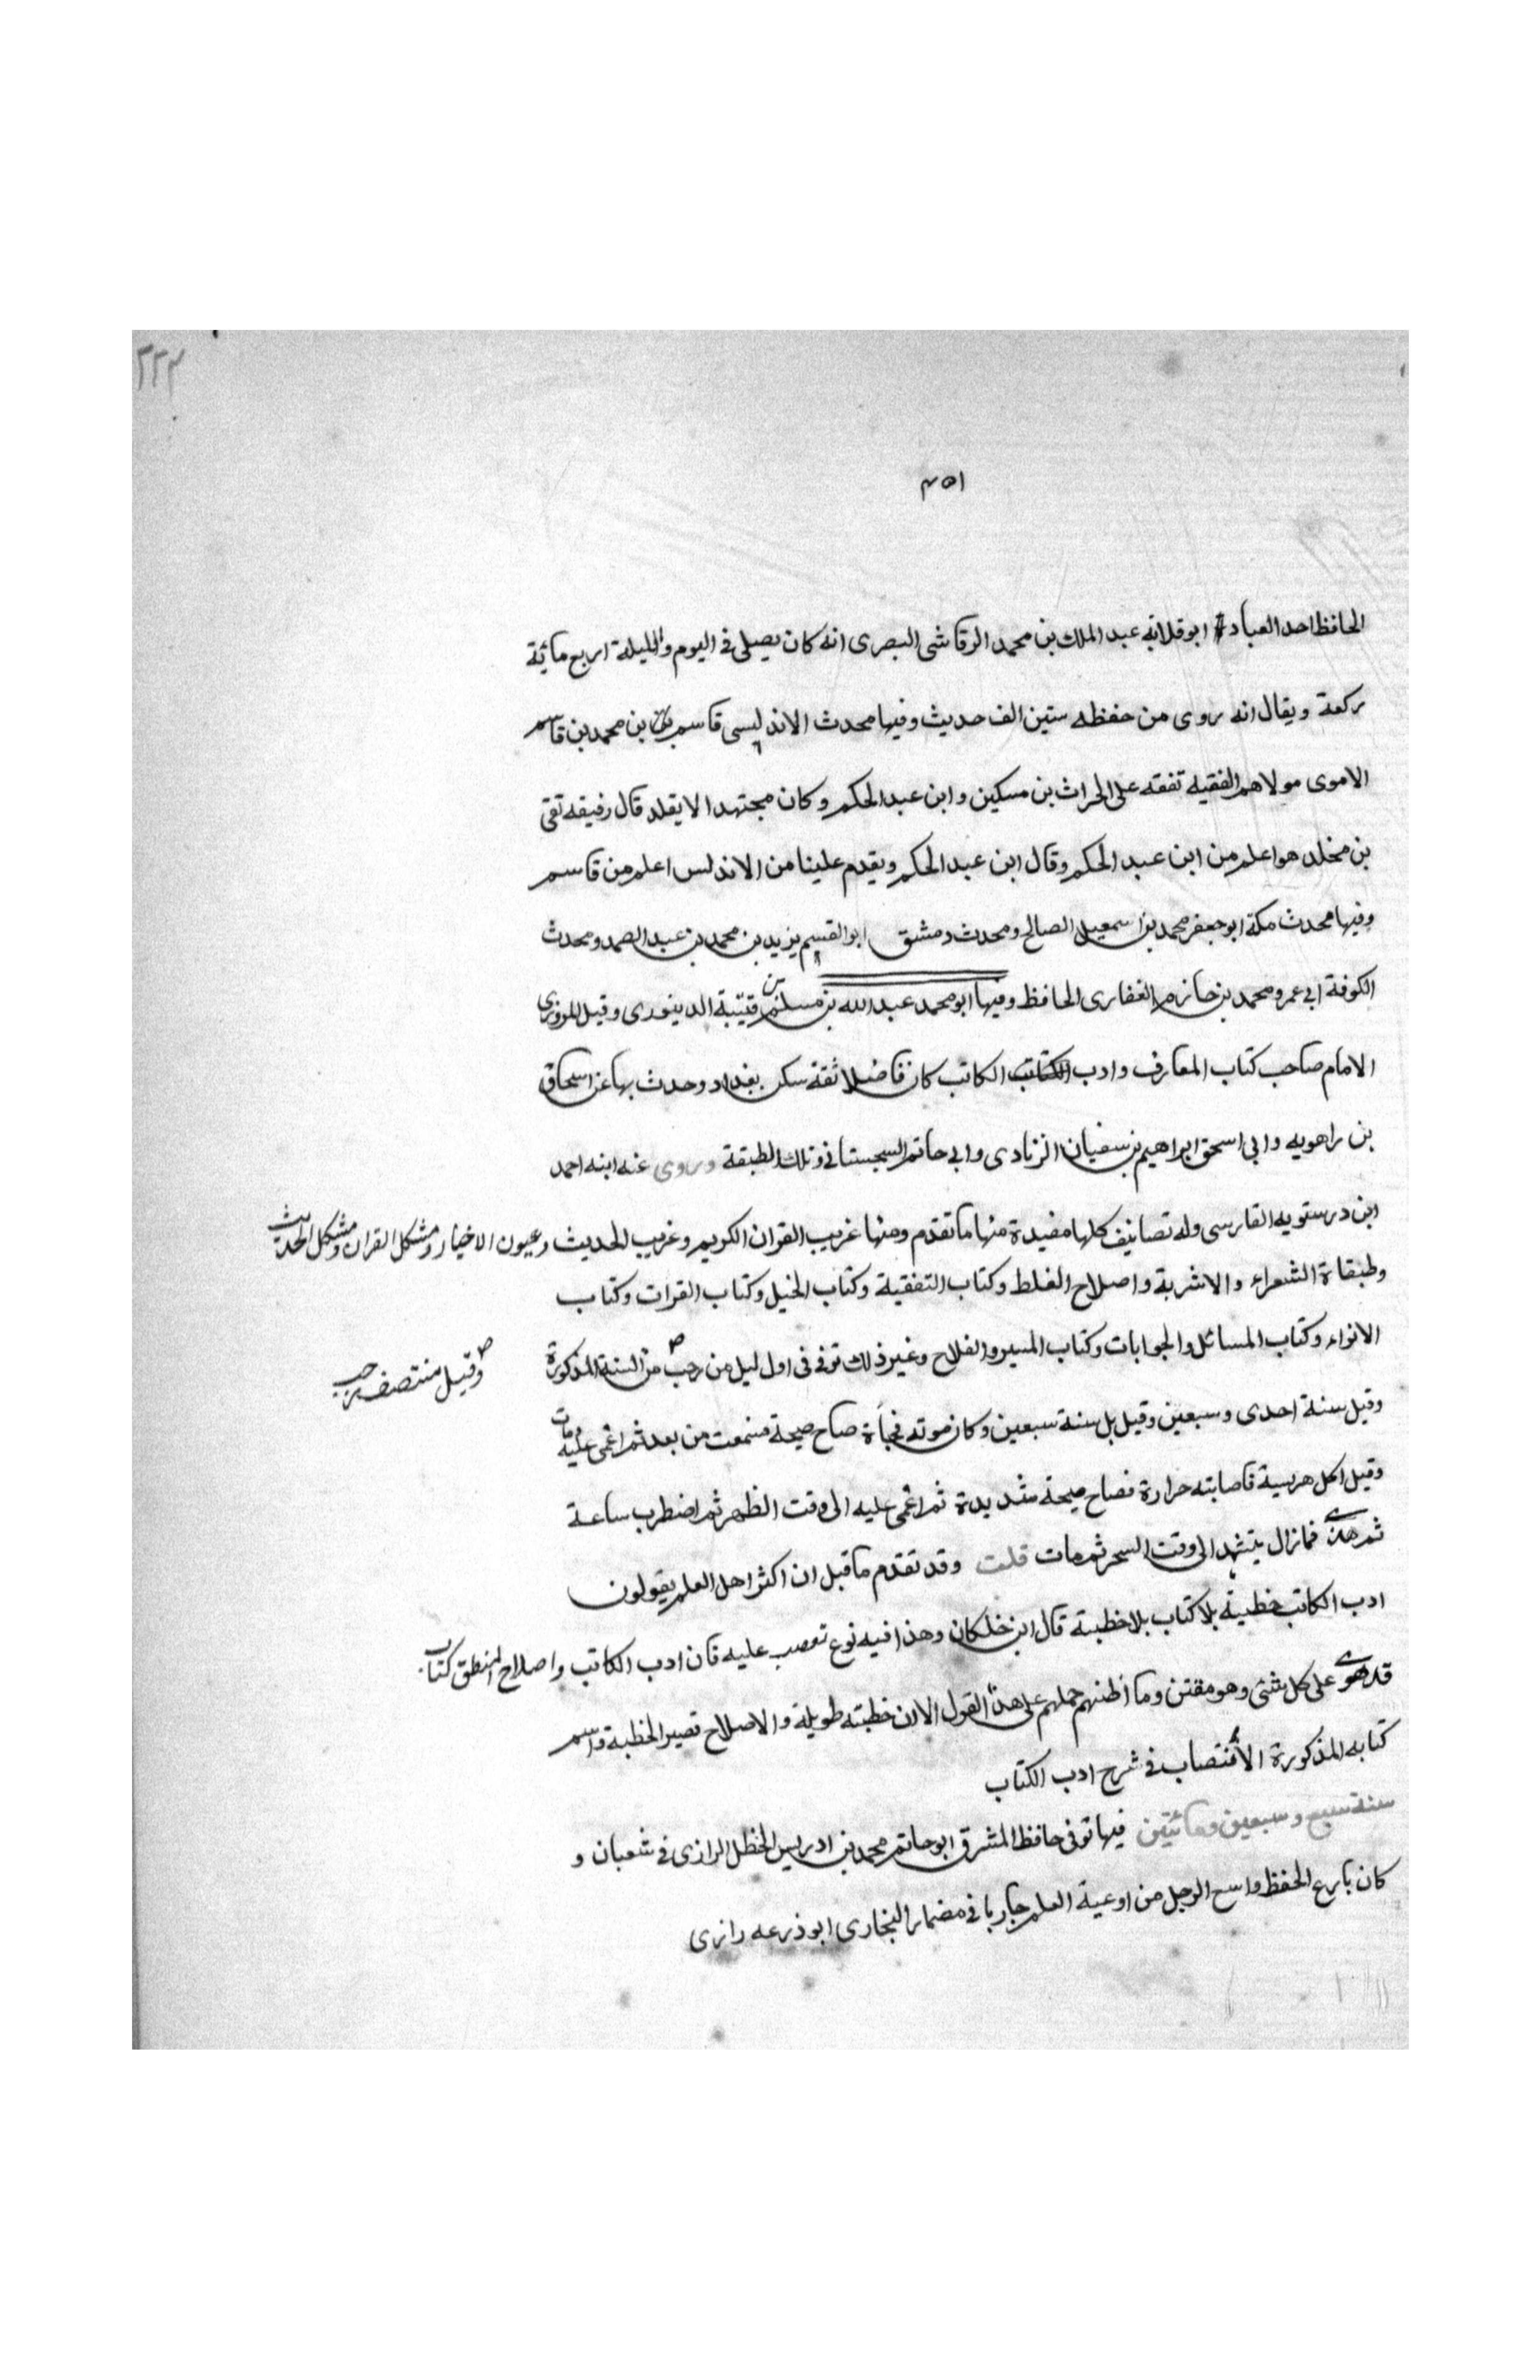 ٢٢٣
٤٥١
الحافظ احد العباد ابو قلابه عبد الملك بن محمد الرقاشى البصرى انه كان يصلى فى اليوم والليلة اربع مائية
ركعة ويقال انه روى من حفظه ستين الف حديث وفيها محدث الاندليسى قاسم بن محمد بن قاسم
الاموى مولاهم الفقيه تفقه على الحراث بن مسكين وابن عبد الحكم وكان مجتهدا لا يقلد قال رفيقه تقى
بن مخلد هو اعلم من ابن عبد الحكم وقال ابن عبد الحكم ويقدم علينا من الاندلس اعلم من قاسم
وفيها محدث مكة ابو جعفر محمد بن اسمعيل الصالح ومحدث دمشق ابو القسيم يزيد بن محمد بن عبد الصمد ومحدث
الكوفة ابى عمرو محمد بن حازم الغفارى الحافظ وفيها ابو محمد عبد الله بن مسلم بن قتيبة الدينورى وقيل المروزى
الامام صاحب كتاب المعارف وادب الكاتب كان فاضلا ثقة سكن بغداد وحدث بها عن اسحاق
بن راهويه وابى اسحق ابراهيم بن سفيان الزنادى وابى حاتم السجستانى وتلك الطبقة وروى عنه ابنه احمد
ابن درستويه الفارسى وله تصانيف كلها مفيدة منها ما تقدم ومنها غريب القران الكريم وغريب الحديث وعيون الاخيار ومشكل القران ومشكل الحديث
وطبقاة الشعراء والاشربة واصلاح الغلط وكتاب التفقية وكتاب الخيل وكتاب القرات وكتاب
الانواء وكتاب المسائل والجوابات وكتاب الميسر والفلاح وغير ذلك توفى فى اول ليل من رجب من السنة المذكورة
وقيل منتصف رجب
وقيل سنة احدى وسبعين وقيل بل سنة سبعين وكان موته فجأة صاح صيحة فسمعت من بعد ثم اغمى عليه ومات
وقيل اكل هريسة فاصابته حرارة فصاح صيحة شديدة ثم اغمى عليه الى وقت الظهر ثم اضطرب ساعة
ثم هدى فمازال يتشهد الى وقت السحر ثم مات قلت وقد تقدم ما قبل ان اكثر اهل العلم يقولون
ادب الكاتب خطبة بلا كتاب بلا خطبة قال ابن خلكان وهذا فيه نوع تعصب عليه فان ادب الكاتب واصلاح المنطق كتاب
قد هوى على كل شئى وهو مفتن وما اظنهم حملهم على هذا القول الا ان خطبته طويلة والاصلاح قصير الخطبة واسم
كتابه المذكورة الاقتصاب فى شرح ادب الكتاب
سنة سبع وسبعين ومائتين فيها توفى حافظ المشرق ابو حاتم محمد بن ادريس الحنظل الرازى فى شعبان و
كان بارع الحفظ واسع الرحل من اوعية العلم جاريا فى مضمار البخارى ابو ذرعه رازى